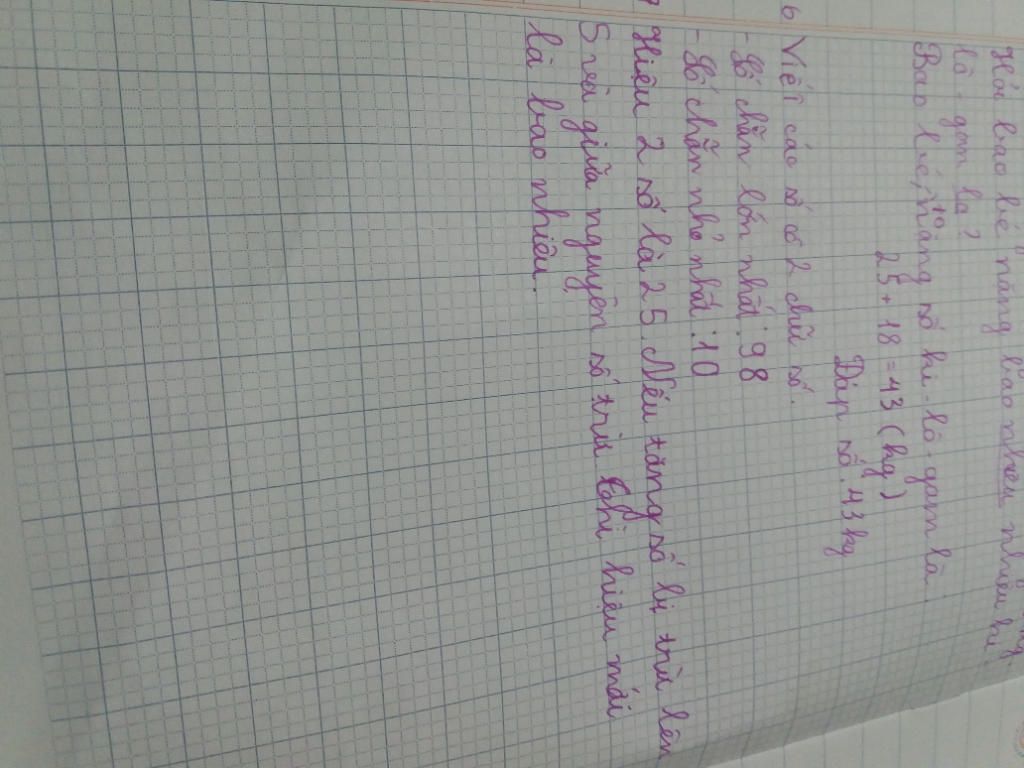 Hỏi bao bé nặng bao nhiêu nhiêu ki
lô - gam la?
Bao bé nặng số ki - lô - gam là.
to
25 + 18 = 43 (kg)
Đáp số. 43 kg
6 Viết các số có 2 chữ số.
- Số chẵn lớn nhất: 98
- Số chẵn nhỏ nhất: 10
Hiệu 2 số là 25. Nếu tăng số bị trừ lên
5 và giữa nguyên số trừ thì hiệu mới
là bao nhiêu.